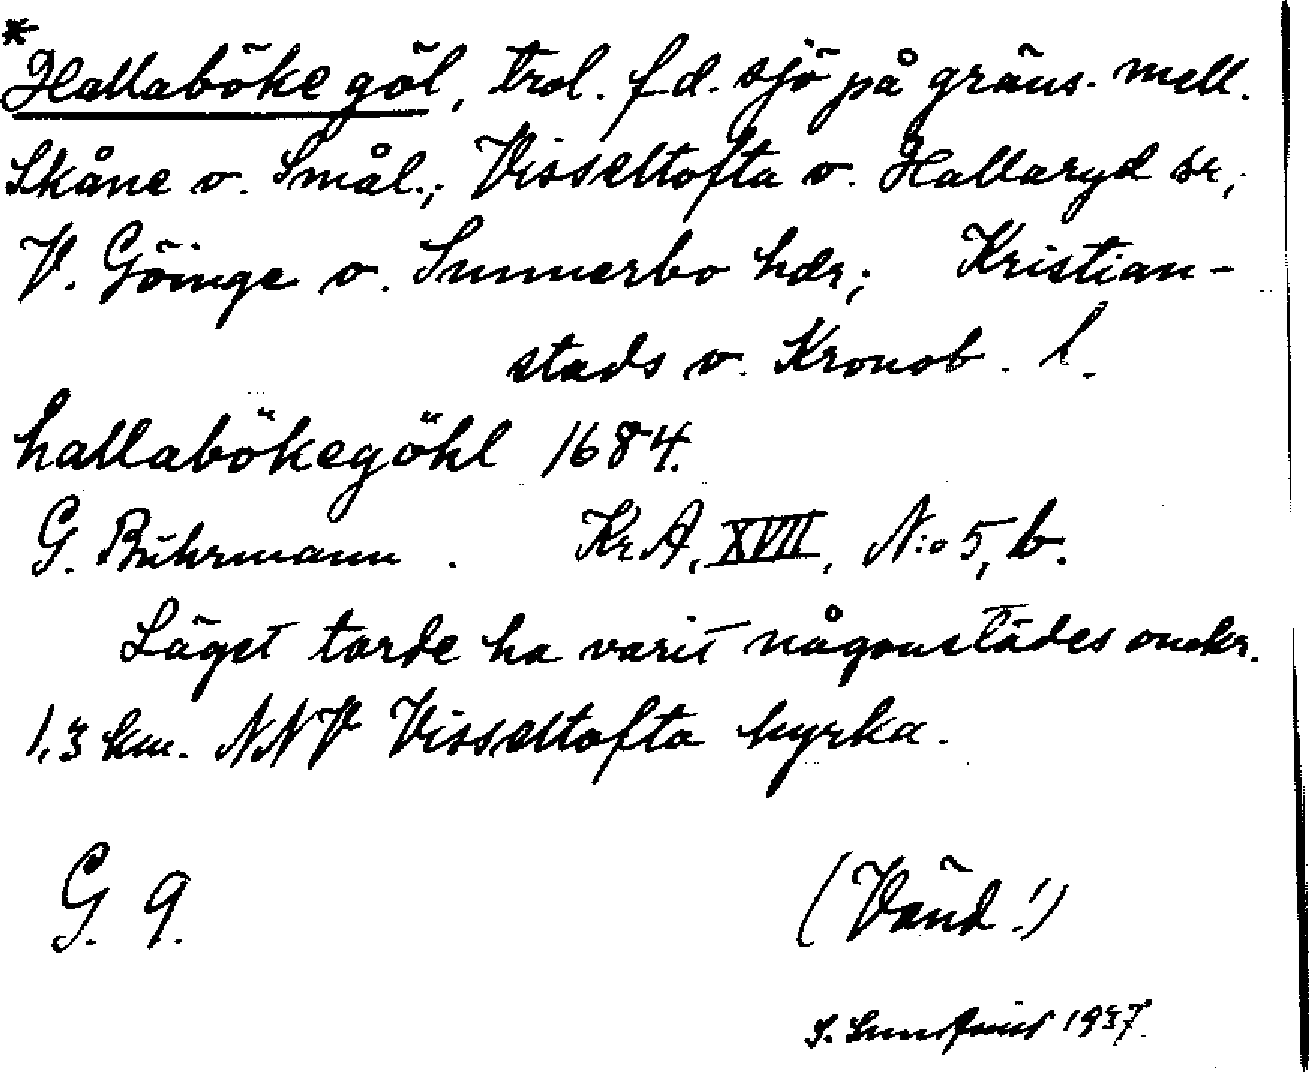 *
Hallaböke göl, trol. f d. sjö på gräns. mell.
Skåne o. Smål.; Visseltofta o. Hallaryd sr,
V. Göinge o. Sunnerbo hdr; Kristian-
stads o. Kronob. l.
hallabökegöhl 1684.
G. Buhrmann. Kr. A, XVII, N:o 5, b.
Läget torde ha varit någonstädes omkr.
1,3 km. NNV Visseltofta kyrka.
G. 9.
(Vänd!)
1937.